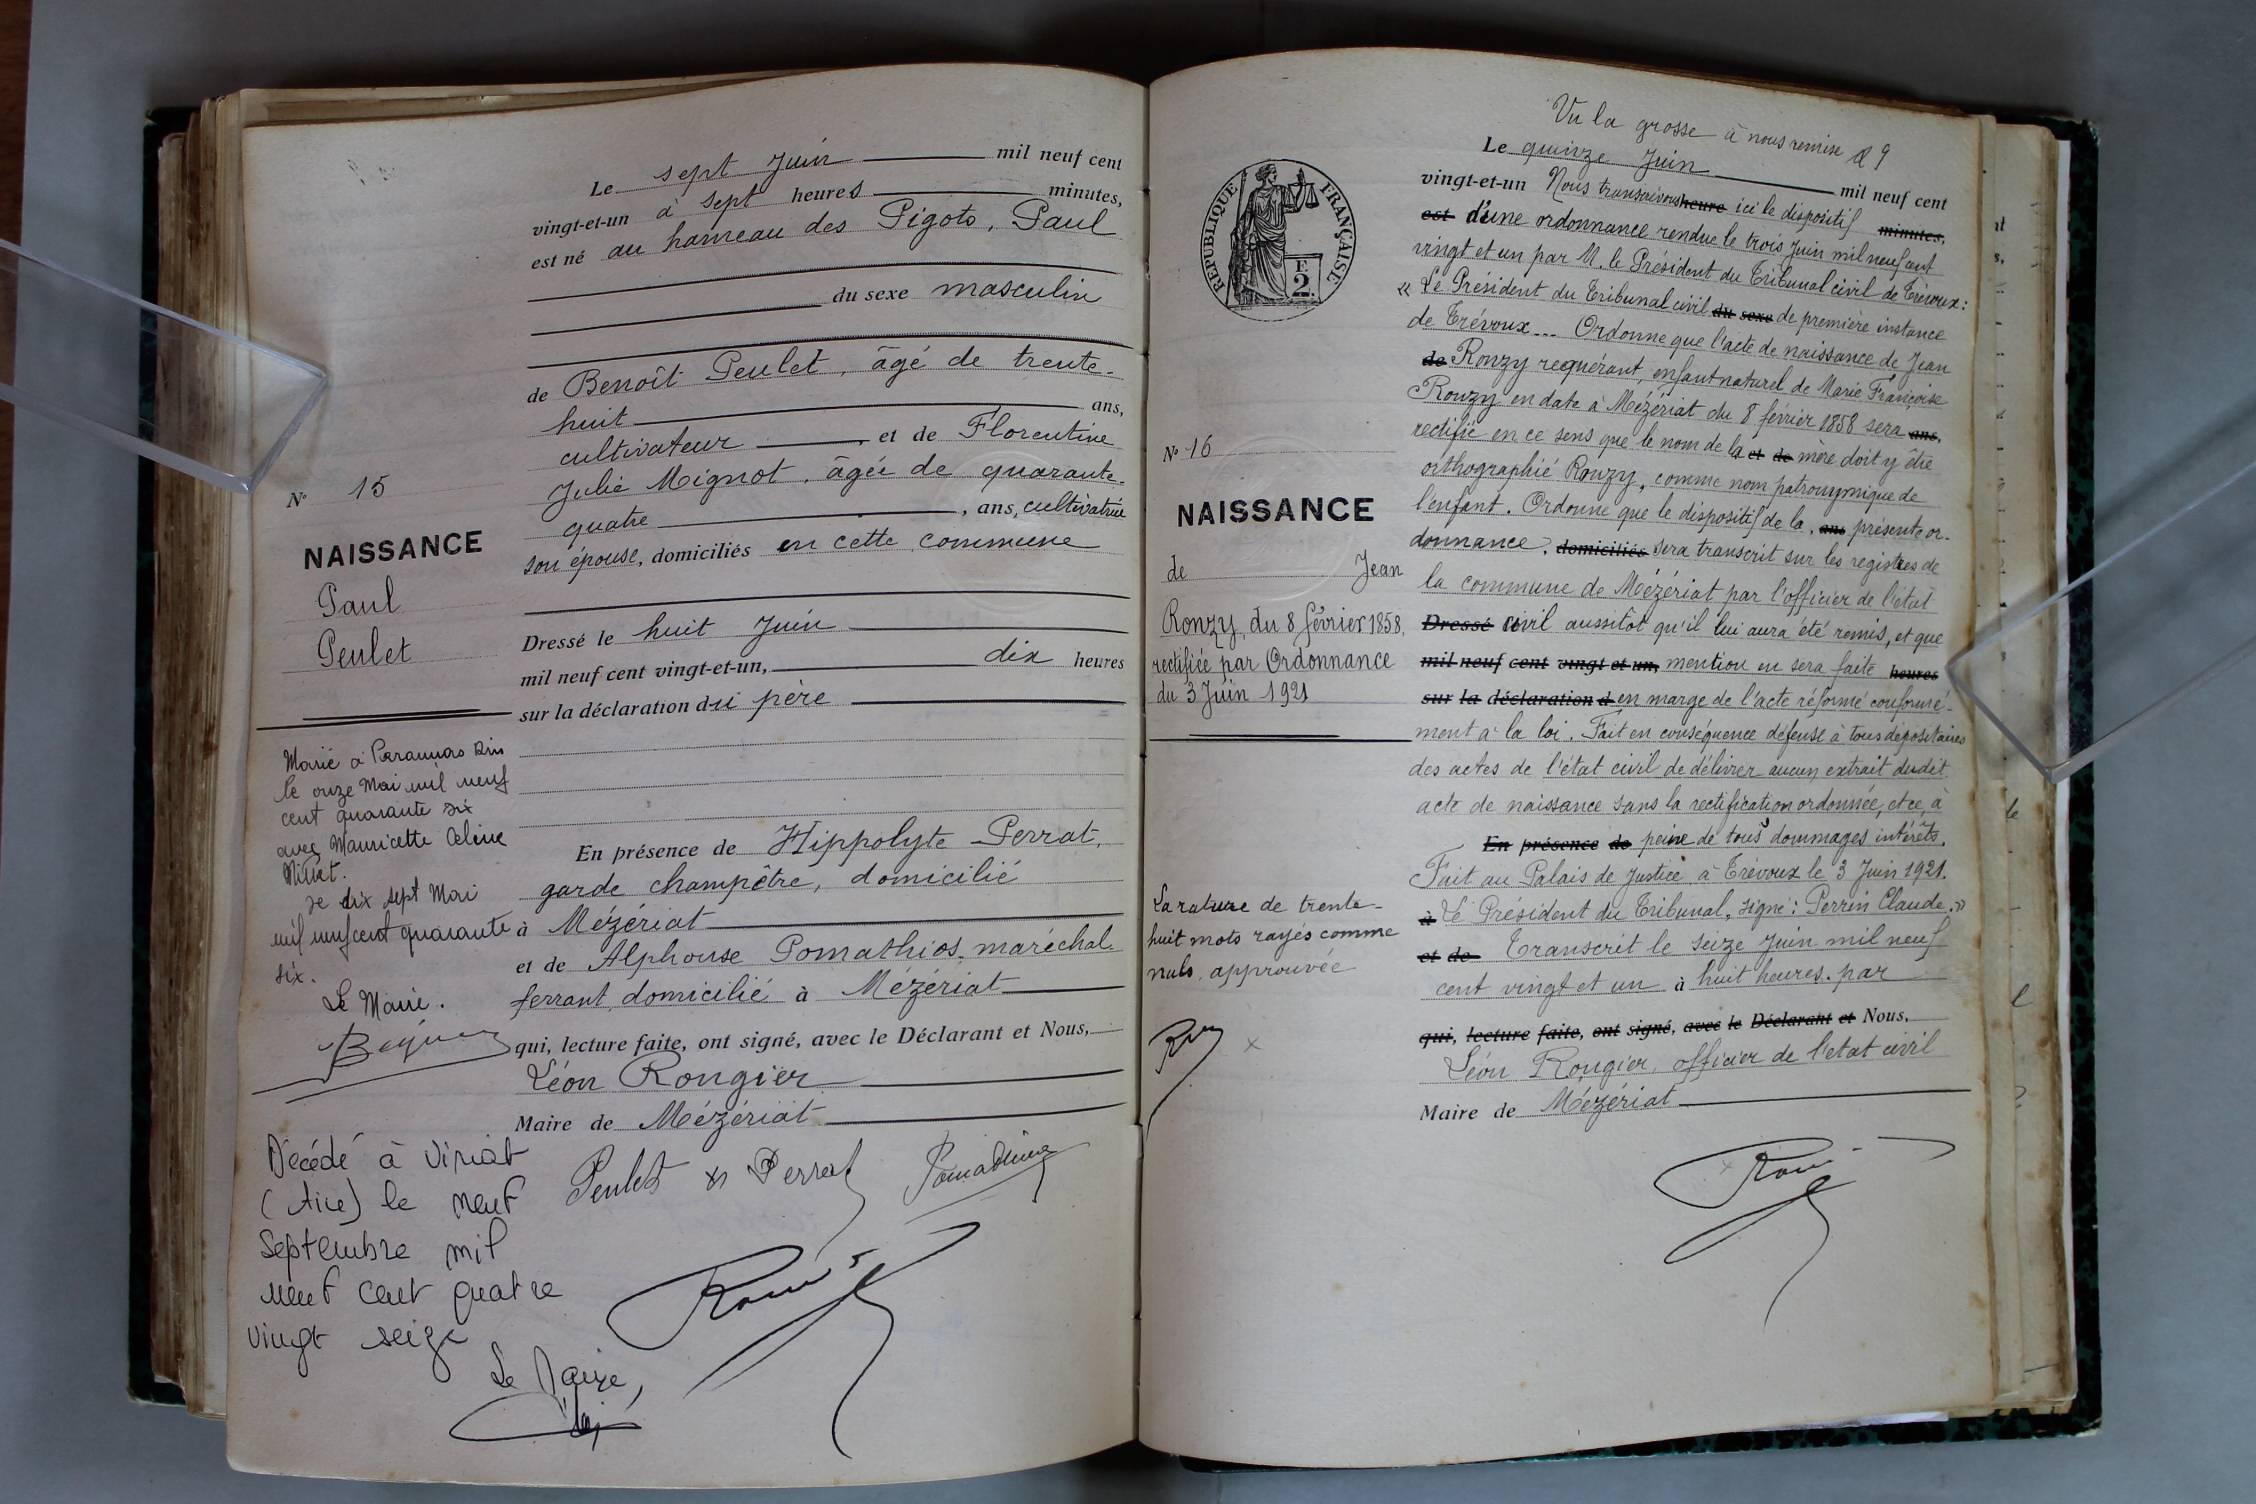 Le sept Juin mil neuf cent
vingt-et-un à sept heures minutes,
est né au hameau des Pigots, Paul
du sexe masculin
de Benoît Peulet, âgé de trente-
huit ans,
cultivateur, et de Florentine
Julie Mignot, âgée de quarante-
quatre, ans, cultivatrice
son épouse, domiciliés en cette commune
Dressé le huit Juin
mil neuf cent vingt-et-un, dix heures
sur la déclaration du père
En présence de Hippolyte Perrat,
garde champêtre, domicilié
à Mézériat
et de Alphonse Pomathios, maréchal-
ferrant, domicilié à Mézériat
qui, lecture faite, ont signé, avec le Déclarant et Nous,
Léon Rongier
Maire de Mézériat
Peulet Perrat
N° 15
NAISSANCE
Paul
Peulet
Marié à
le onze Mai mil neuf
cent quarante six
avec Mauricette Celine
Le dix sept Mai
mil neuf cent quarante
six.
Le Maire.
Décédé à Viriat
(Ain) le neuf
Septembre mil
neuf cent quatre
vingt seize
Le Maire,
RÉPUBLIQUE FRANÇAISE
F.
2.
N° 16
NAISSANCE
de Jean
Ronzy, du 8 février 1858,
rectifiée par Ordonnance
du 3 Juin 1921
La rature de trente-
huit mots rayés comme
nuls, approuvée
Vu la grosse à nous remise 9
Le quinze Juin mil neuf cent
vingt-et-un Nous transcrivons heure ici le dispositif minutes,
est d'une ordonnance rendue le trois Juin mil neuf cent
vingt et un par M. le Président du Tribunal civil de Trévoux:
« Le Président du Tribunal civil du sexe de première instance
de Trévoux... Ordonne que l'acte de naissance de Jean
de Ronzy requérant, enfant naturel de Marie Françoise
Rouzy en date à Mézériat du 8 février 1858 sera ans,
rectifié en ce sens que le nom de la et de mère doit y être
orthographié Ronzy, comme nom patronymique de
l'enfant. Ordonne que le dispositif de la, ans présente or-
donnance, domiciliés sera transcrit sur les registres de
la commune de Mézériat par l'officier de l'état
Dressé civil aussitôt qu'il lui aura été remis, et que
mil neuf cent vingt et un, mention en sera faite heures
sur la déclaration d en marge de l'acte réformé conformé-
ment à la loi. Fait en conséquence défense à tous dépositaires
des actes de l'état civil de délivrer aucun extrait dudit
acte de naissance sans la rectification ordonnée, et ce, à
En présence de peine de tous dommages intérêts.
Fait au Palais de Justice à Trévoux le 3 Juin 1921.
à Le Président du Tribunal, signé: Perrin Claude. »
et de Transcrit le seize Juin mil neuf
cent vingt et un à huit heures. par
qui, lecture faite, ont signé, avec le Déclarant et Nous,
Léon Rongier, officier de l'etat civil
Maire de Mézériat